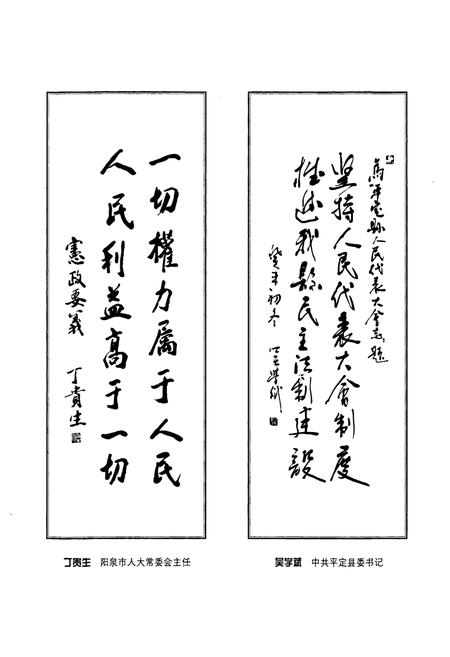 一切權力属于人民
人民利益高于一切
憲政要義 丁貴生
丁贵生 阳泉市人大常委会主任
为平定县人民代表大會志题
坚持人民代表大會制度
推进我县民主法制建設
癸未初冬 吴學斌
吴学斌 中共平定县委书记